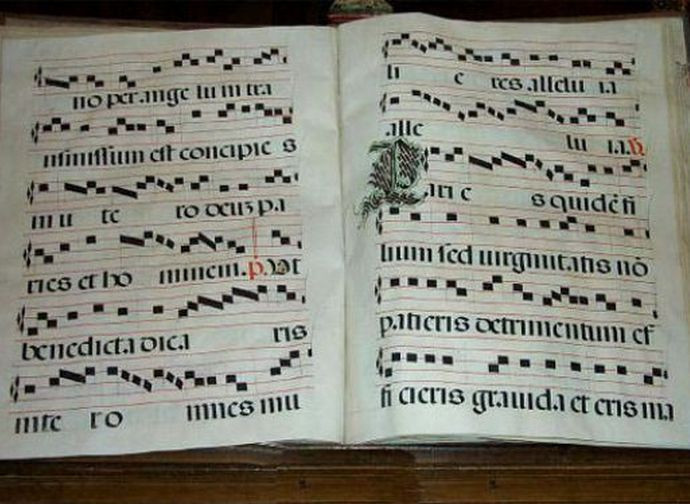 no per ange lum tra
nsmissum est concipie s
in u te ro deuz pa
ries et ho minem. p. Vt
benedicta dica ris
inte r o mnes mu
li e res allelu ia
alle lu ia. V.
Parie s quidē fi
lium sed uirginitatis nō
patieris detrimentum ef
fi cieris grauida et eris ma